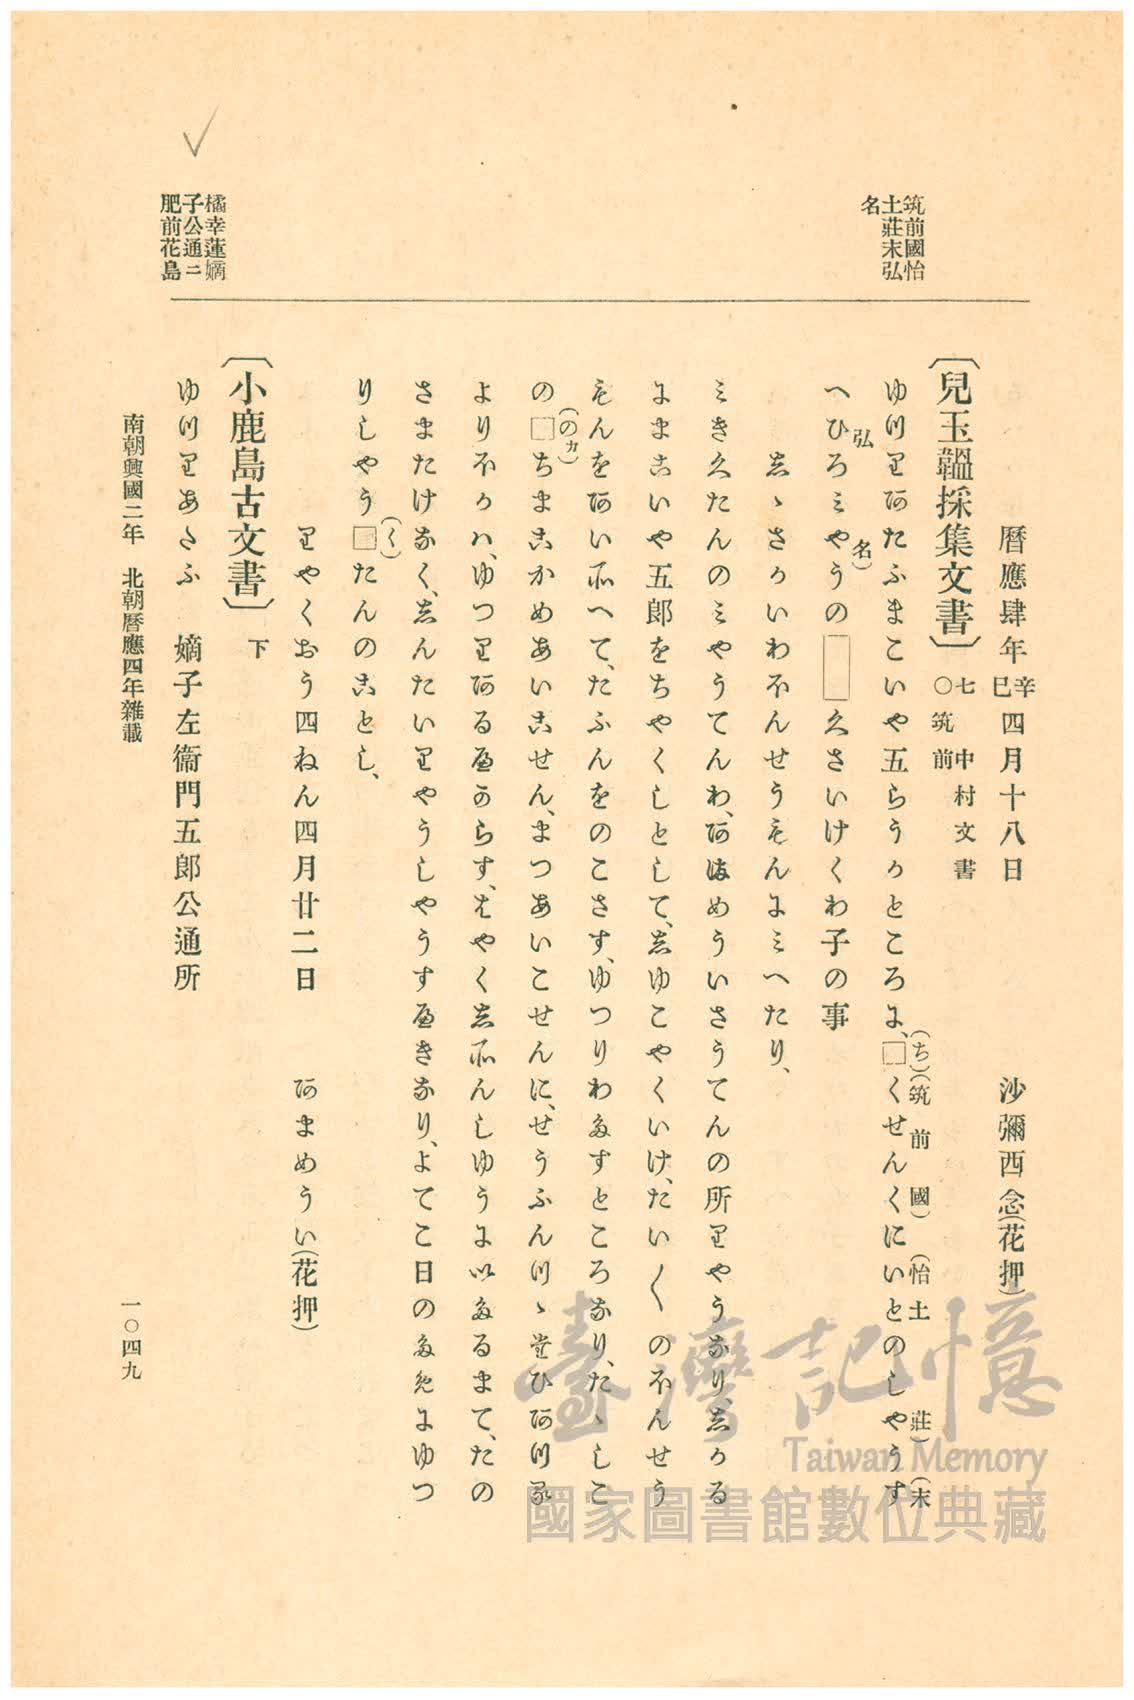 筑前國怡
土莊末弘
名
橘幸蓮嫡
子公通ニ
肥前花島
曆應肆年辛巳四月十八日　沙彌西念(花押)
〔兒玉韞採集文書〕七 中村文書 ○筑前
(ち)(筑前國)(怡土莊)(末
ゆ川里阿たふまこいや五らうかところよ、□くせんくにいとのしやうす
弘名)
へひろミやうの□久さいけくわ子の事
志ゝさかいわ不んせうもんよミへたり、
ミき久たんのミやうてんわ、阿まめういさうてんの所里やうなり、志かる
よまこいや五郎をちやくしとして、志ゆこやくいけ、たい〳〵の不んせう
もんを阿い所へて、たふんをのこさす、ゆつりわたすところなり、たゝしこ
(のカ)
の□ちまこかめあいこせん、まつあいこせんに、せうふん川ゝ堂ひ阿川
より不かハ、ゆつ里阿るへからす、はやく志所んしゆうよ以たるまて、たの
さまたけなく、志んたい里やうしやうすへきなり、よてこ日のためよゆつ
(く)
りしやう□たんのことし、
里やくおう四ねん四月廿二日　阿まめうい(花押)
〔小鹿島古文書〕下
ゆ川里あたふ　嫡子左衞門五郎公通所
南朝興國二年　北朝曆應四年雜載
一〇四九
臺灣記憶
Taiwan Memory
國家圖書館數位典藏